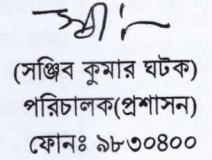 (সঞ্জিব কুমার ঘটক)
পরিচালক(প্রশাসন)
ফোনঃ ৯৮৩০৪০০